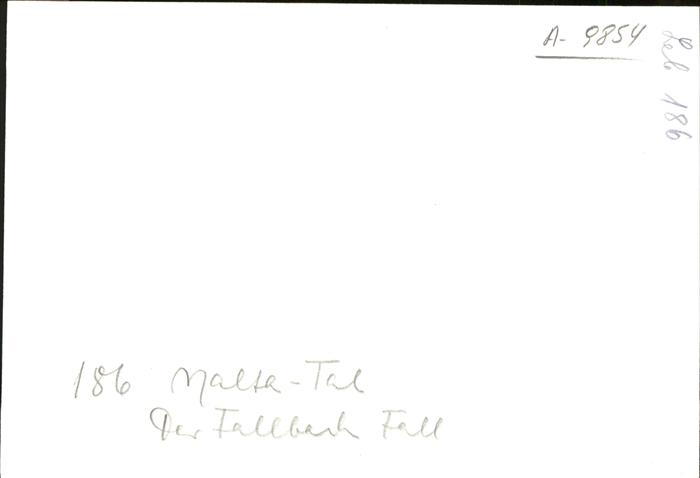 A- 9854
Leb 186
186 Malta-Tal
Der Fallbach Fall